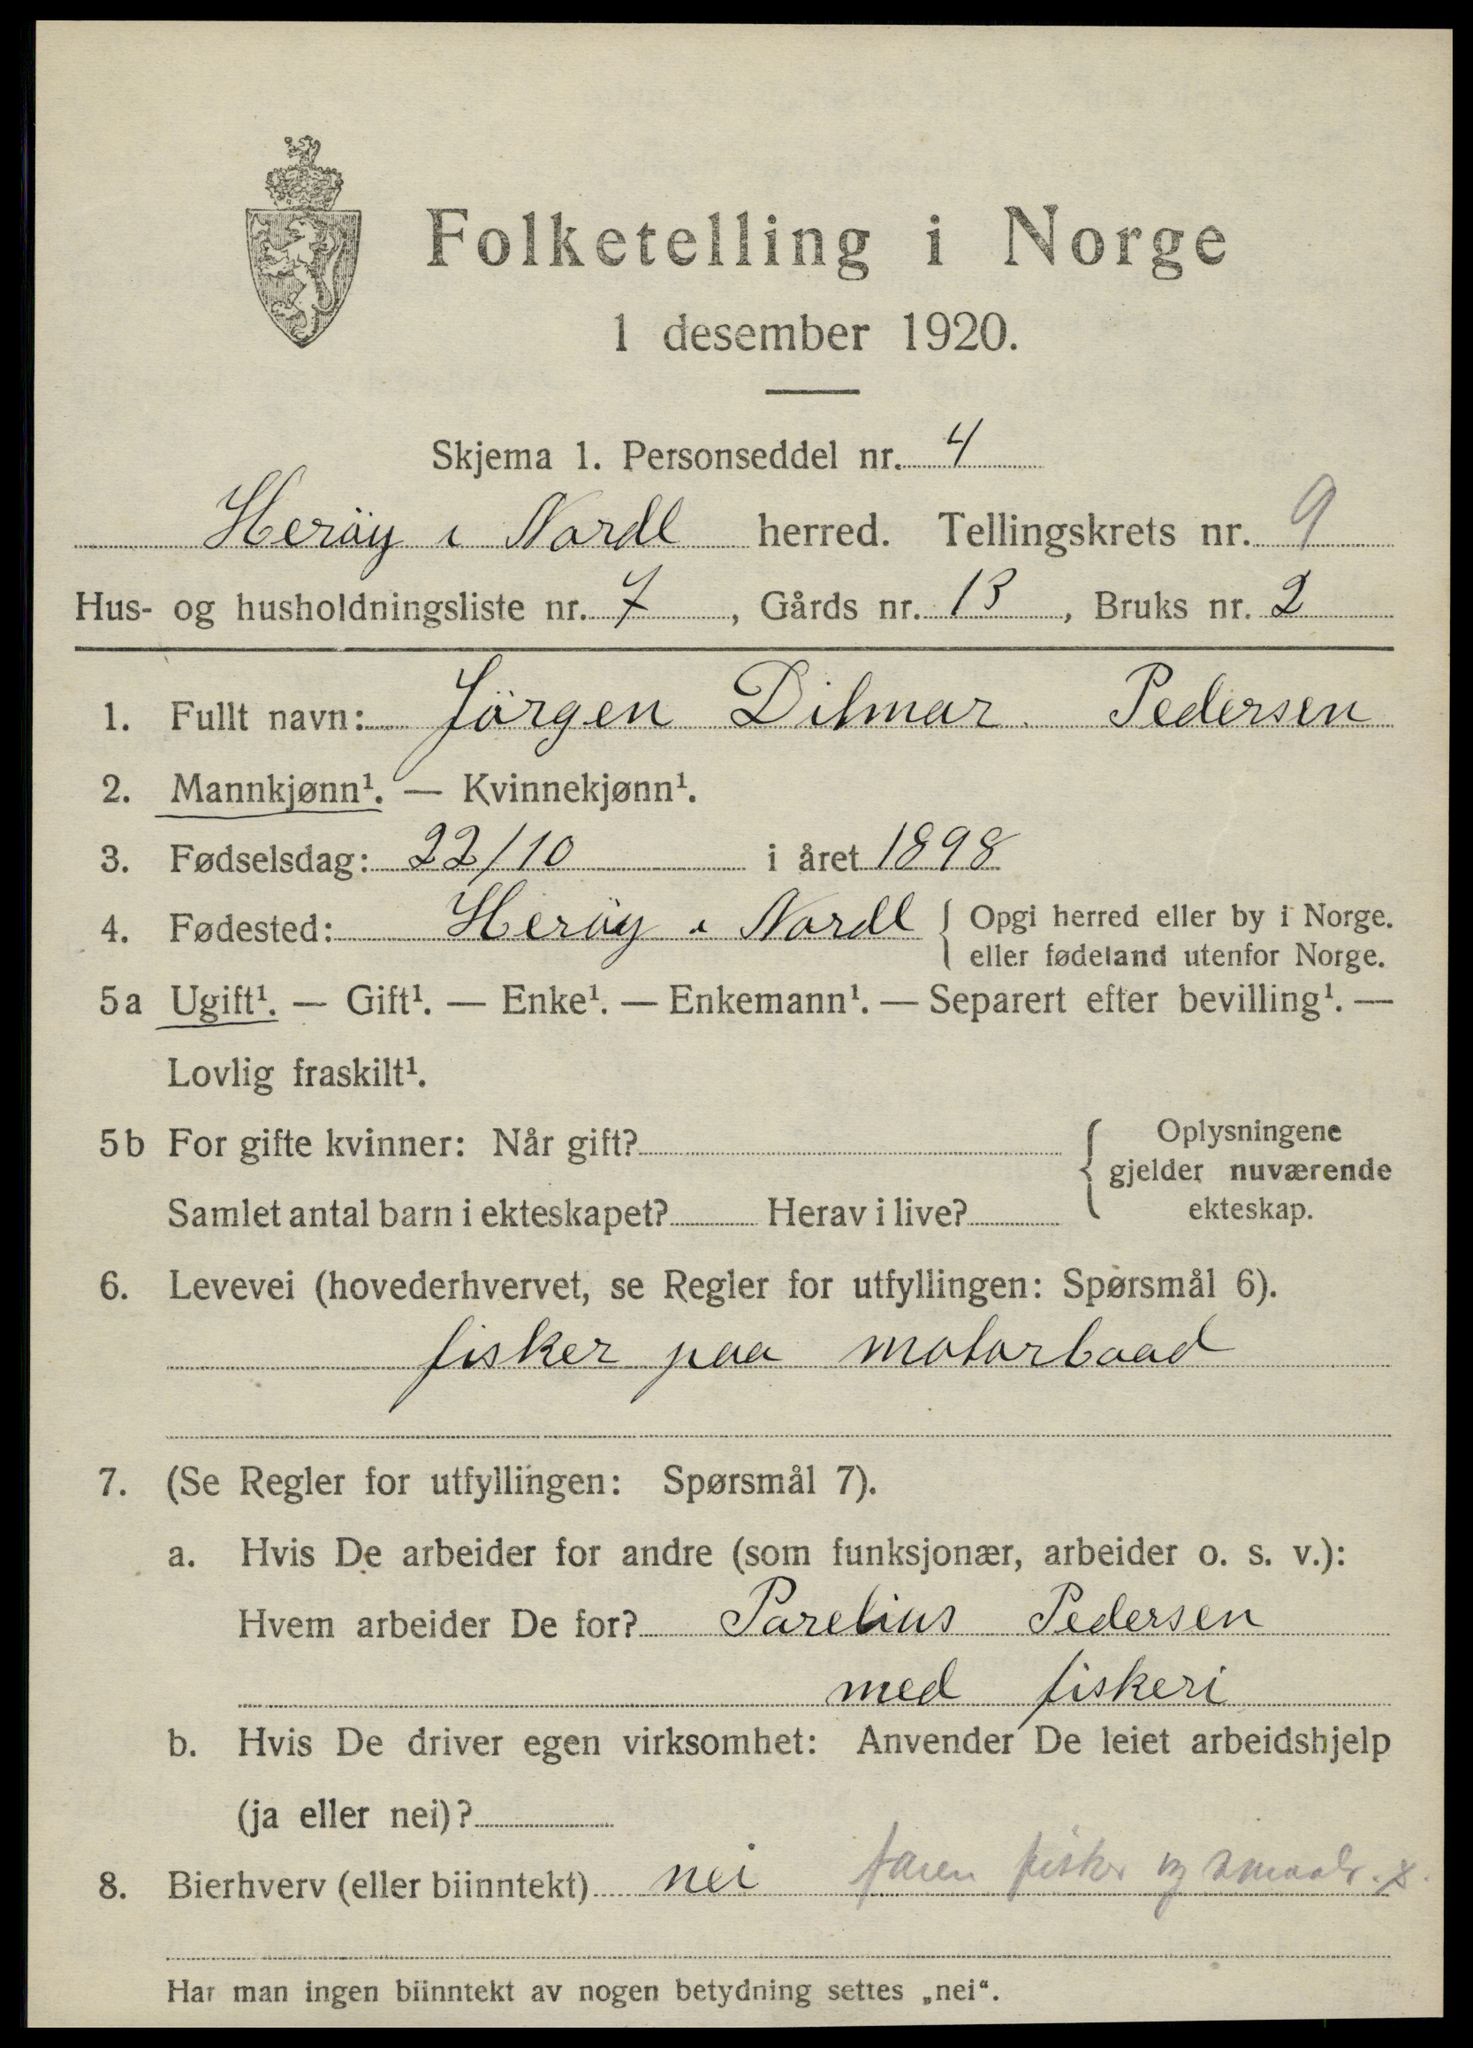 Folketelling i Norge
1 desember 1920.
Skjema 1. Personseddel nr. 4
Herøy i Nordl herred. Tellingskrets nr. 9
Hus- og husholdningsliste nr. 7, Gårds nr. 13, Bruks nr. 2
1. Fullt navn: Jörgen Dilmar Pedersen
2. Mannkjønn¹. — Kvinnekjønn¹.
3. Fødselsdag: 22/10 i året 1898
4. Fødested: Herøy i Nordl { Opgi herred eller by i Norge.
eller fødeland utenfor Norge.
5a Ugift¹. — Gift¹. — Enke¹. — Enkemann¹. — Separert efter bevilling¹. —
Lovlig fraskilt¹.
5b For gifte kvinner: Når gift? { Oplysningene
gjelder nuværende
ekteskap.
Samlet antal barn i ekteskapet? Herav i live?
6. Levevei (hovederhvervet, se Regler for utfyllingen: Spørsmål 6).
fisker paa motorbaad
7. (Se Regler for utfyllingen: Spørsmål 7).
a. Hvis De arbeider for andre (som funksjonær, arbeider o. s. v.):
Hvem arbeider De for? Parelius Pedersen
med fiskeri
b. Hvis De driver egen virksomhet: Anvender De leiet arbeidshjelp
(ja eller nei)?
8. Bierhverv (eller biinntekt) nei faren fisker og smaabr. x.
Har man ingen biinntekt av nogen betydning settes „nei“.